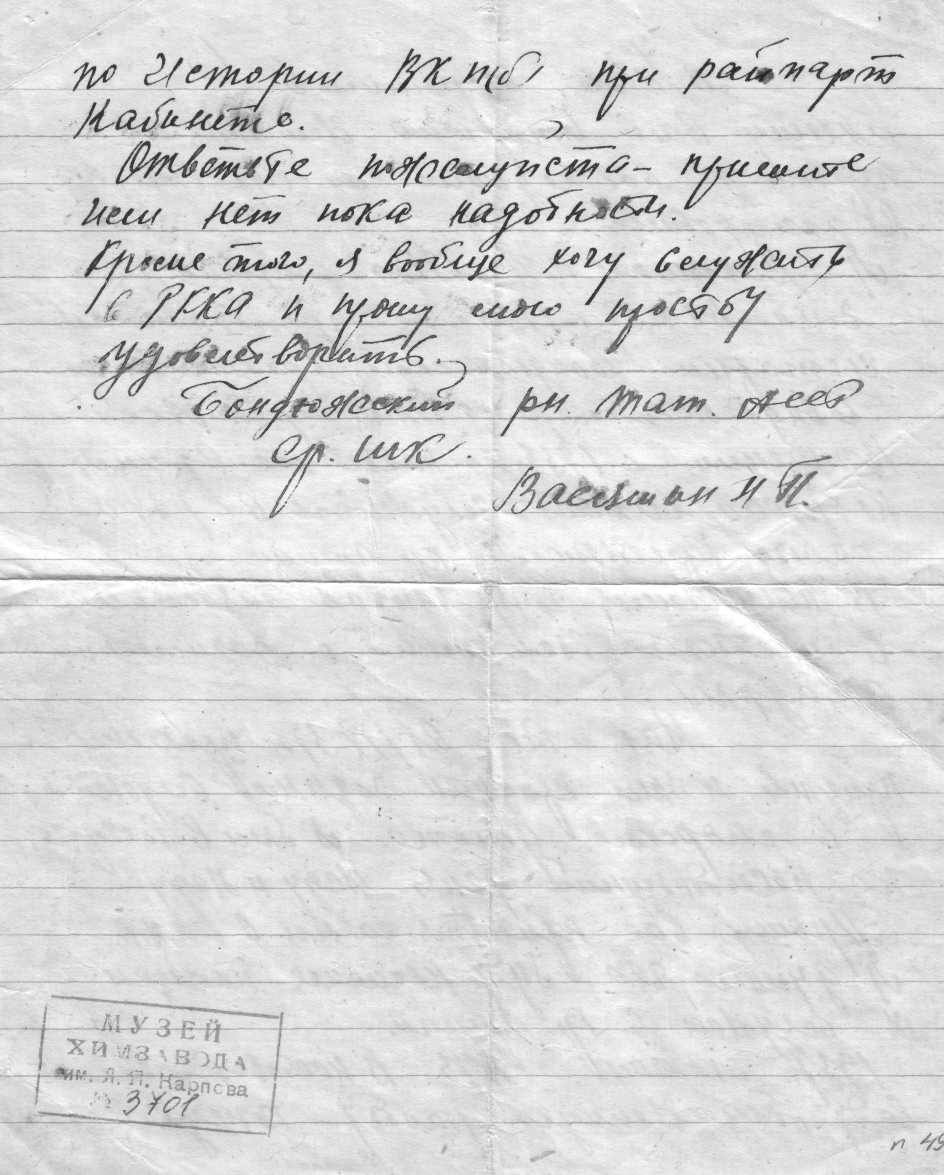 по Истории ВКП(б) при райпарт
Кабинете.
Ответьте пожалуйста - примите
или нет пока надобности.
Кроме того, я вообще хочу служить
в РККА и прошу мою просьбу
удовлетворить.
Бондюжский рн. Тат. АССР
Ср. шк.
МУЗЕЙ
ХИМЗАВОДА
им. Л. Я. Карпова
№ 3701
п 49